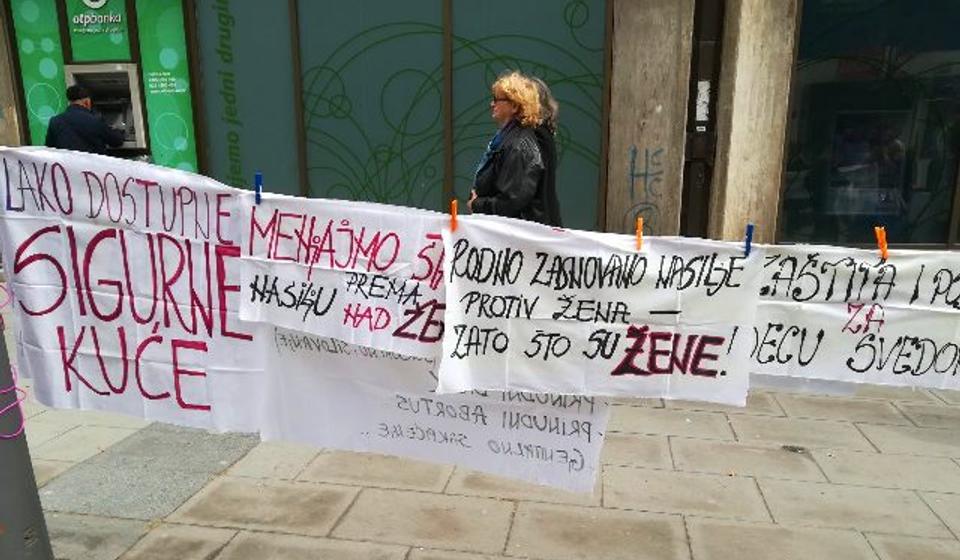 otpbanka
jemo jedni drugim
LAKO DOSTUPNE
SIGURNE
KUĆE
MENJAJMO
NASILJU PREMA
NAD
RODNO ZASNOVANO NASILJE
PROTIV ŽENA —
ZATO ŠTO SU ŽENE!
ZAŠTITA I
ZA
DECU SVEDOK
PRINUDNI
PRINUDNI ABORTUS
GENITALNO SAKAĆENJE..